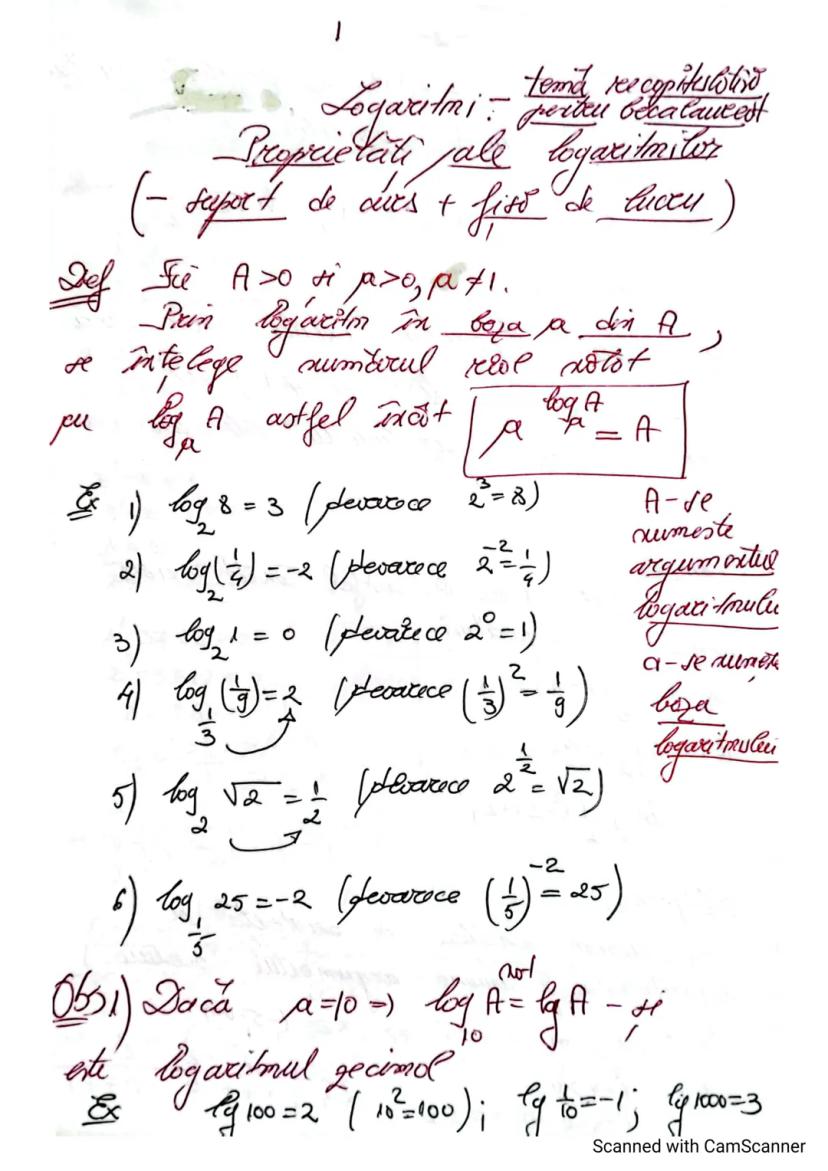 1
Logaritmi - temă recapitulativă
pentru bacalaureat
Proprietăți ale logaritmilor
(- suport de curs + fișă de lucru)
Def Fie A>0 și a>0, a≠1.
Prin logaritm în baza a din A,
se înțelege numărul real notat
cu log_a A astfel încât a^(log_a A) = A
Ex 1) log_2 8 = 3 (deoarece 2^3 = 8)
2) log_2 (1/4) = -2 (deoarece 2^-2 = 1/4)
3) log_2 1 = 0 (deoarece 2^0 = 1)
4) log_1/3 (1/9) = 2 (deoarece (1/3)^2 = 1/9)
5) log_2 √2 = 1/2 (deoarece 2^1/2 = √2)
6) log_1/5 25 = -2 (deoarece (1/5)^-2 = 25)
A - se
numește
argumentul
logaritmului
a - se numește
baza
logaritmului
Obs 1) Dacă a=10 => log_10 A =^not lg A - și
este logaritmul zecimal
Ex lg 100 = 2 (10^2 = 100); lg 1/10 = -1; lg 1000 = 3
Scanned with CamScanner